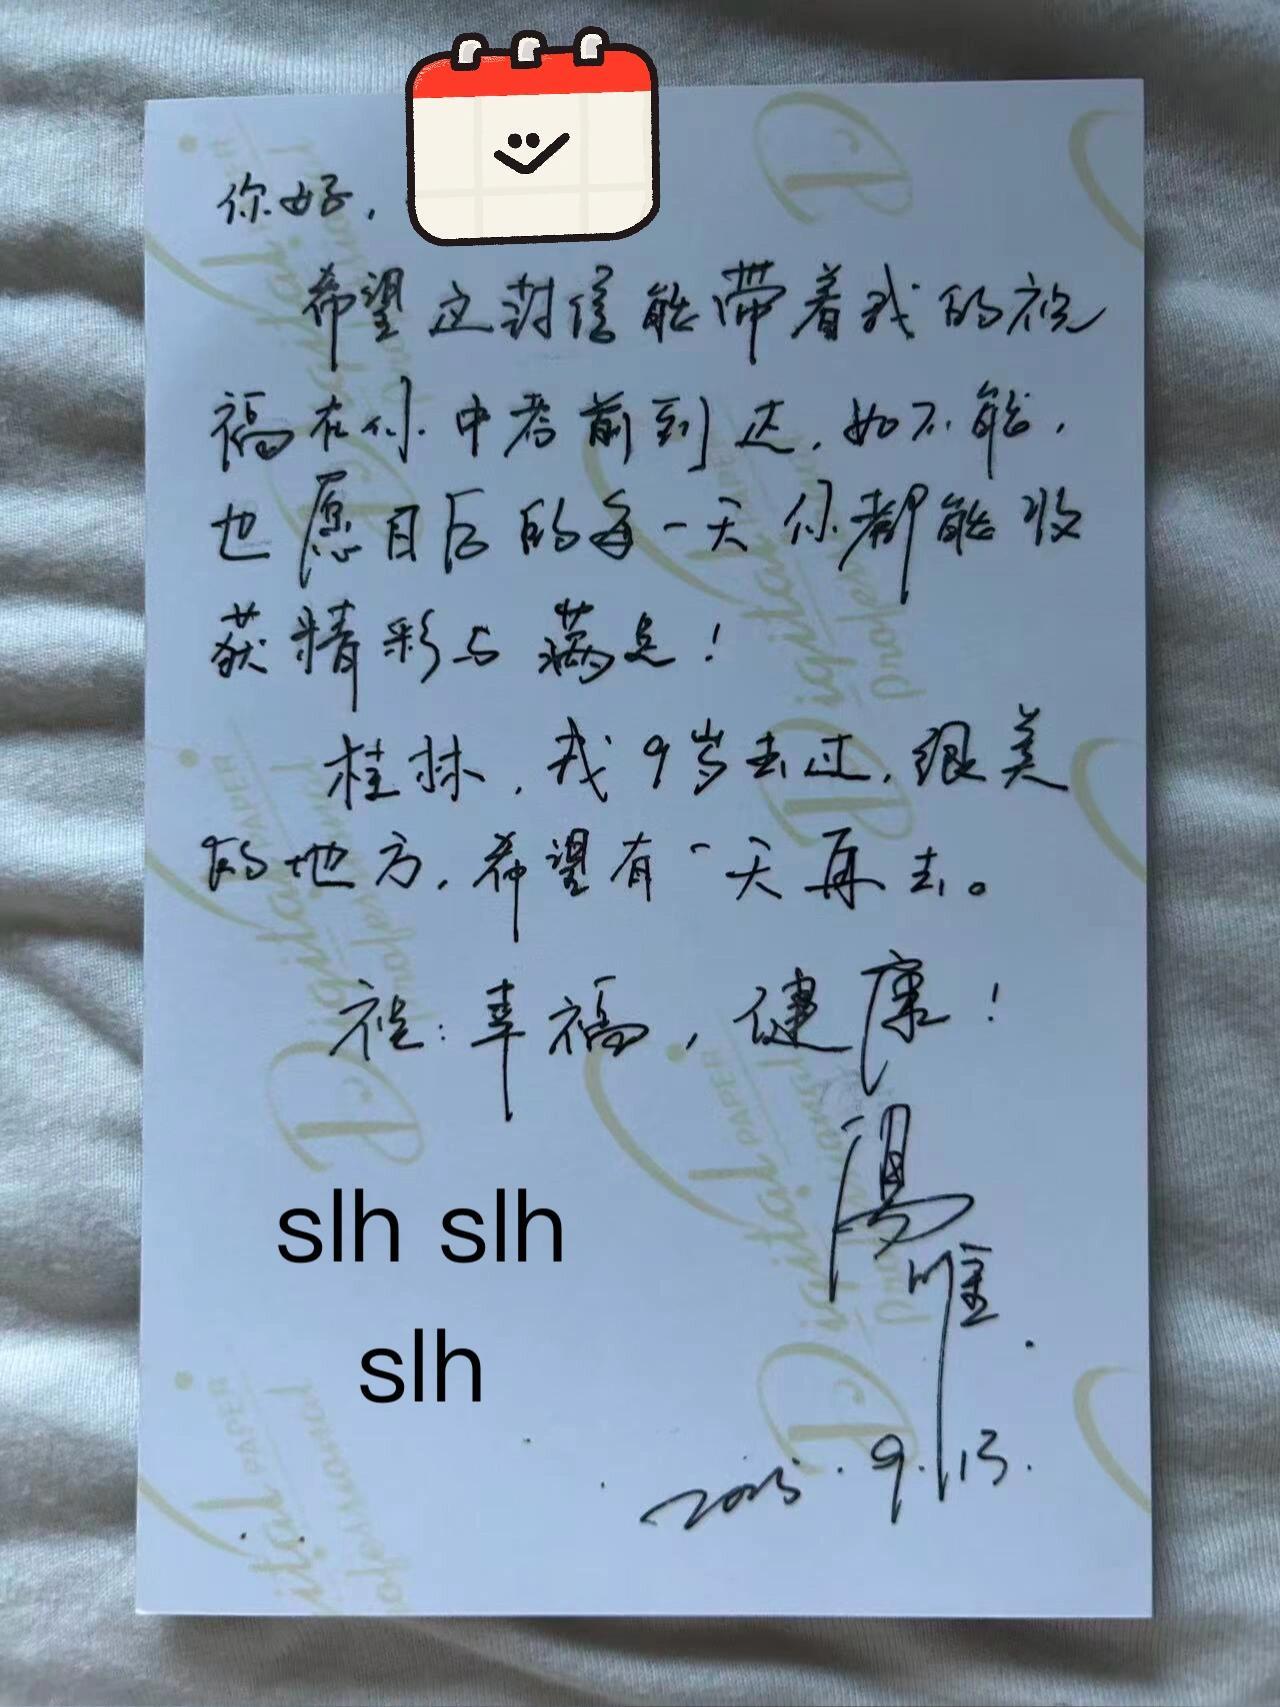 你好,
希望这封信能带着我的祝
福在你中考前到达,如不能,
也愿日后的每一天你都能收
获精彩与满足!
桂林,我9岁去过,很美
的地方,希望有一天再去。
祝:幸福,健康!
汤唯.
2025.9.13.
slh slh
slh
Digital PAPER
Professional